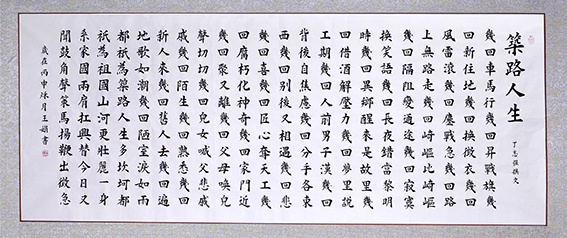 築路人生
丁志強撰文
幾回車馬行幾回昇戰旗幾
回新住地幾回換微衣幾回
風雷浪幾回鏖戰急幾回路
上無路走幾回崎嶇比崎嶇
幾回隔阻變通途幾回寂寞
換笑語幾回長夜錯當黎明
時幾回異鄉醒來是故里幾
回借酒解壓力幾回夢里說
工期幾回人前男子漢幾回
背後自焦慮幾回分手各東
西幾回別後又相遇幾回悲
幾回喜幾回匠心奪天工幾
回腐朽化神奇幾回家門近
幾回聚又離幾回父母喚兒
聲切切幾回兒女喊父悲戚
戚幾回陌生幾回熟悉幾回
新人來幾回舊人去幾回遍
地歌如潮幾回陋室淚如雨
都祇為築路人生多坎坷都
祇為祖國山河更壯麗一身
系家國兩肩扛興替今日又
聞鼓角聲策馬揚鞭出微急
歲在丙申 月王 書